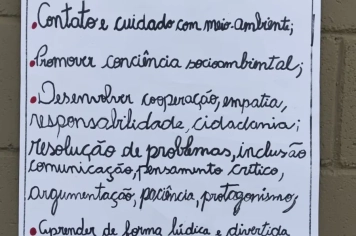 •Contato e cuidado com meio-ambiente;
•Promover conciência socioambiental;
•Desenvolver cooperação, empatia,
responsabilidade, cidadania;
resolução de problemas, inclusão
comunicação, pensamento crítico,
argumentação, paciência, protagonismo;
•Aprender de forma lúdica e divertida